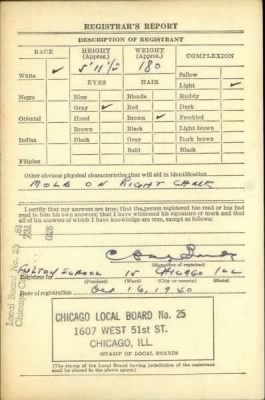 REGISTRAR'S REPORT
DESCRIPTION OF REGISTRANT
RACE HEIGHT (Approx.) WEIGHT (Approx.) COMPLEXION
White ✓ 5' 11 1/2" 180 Sallow
EYES HAIR Light ✓
Negro Blue Blonde Ruddy
Gray ✓ Red Dark
Oriental Hazel Brown ✓ Freckled
Brown Black Light brown
Indian Black Gray Dark brown
Bald Black
Filipino
Other obvious physical characteristics that will aid in identification
MOLE ON RIGHT CHEEK
I certify that my answers are true; that the person registered has read or has had
read to him his own answers; that I have witnessed his signature or mark and that
all of his answers of which I have knowledge are true, except as follows:
Local Board No. 25 81
Chicago 031
025
(Signature of registrar)
Registrar for FULTON SCHOOL 15 CHICAGO ILL
(Precinct) (Ward) (City or county) (State)
Date of registration Oct 16, 1940
CHICAGO LOCAL BOARD No. 25
1607 WEST 51st ST.
CHICAGO, ILL.
(STAMP OF LOCAL BOARD)
(The stamp of the Local Board having jurisdiction of the registrant
shall be placed in the above space.)